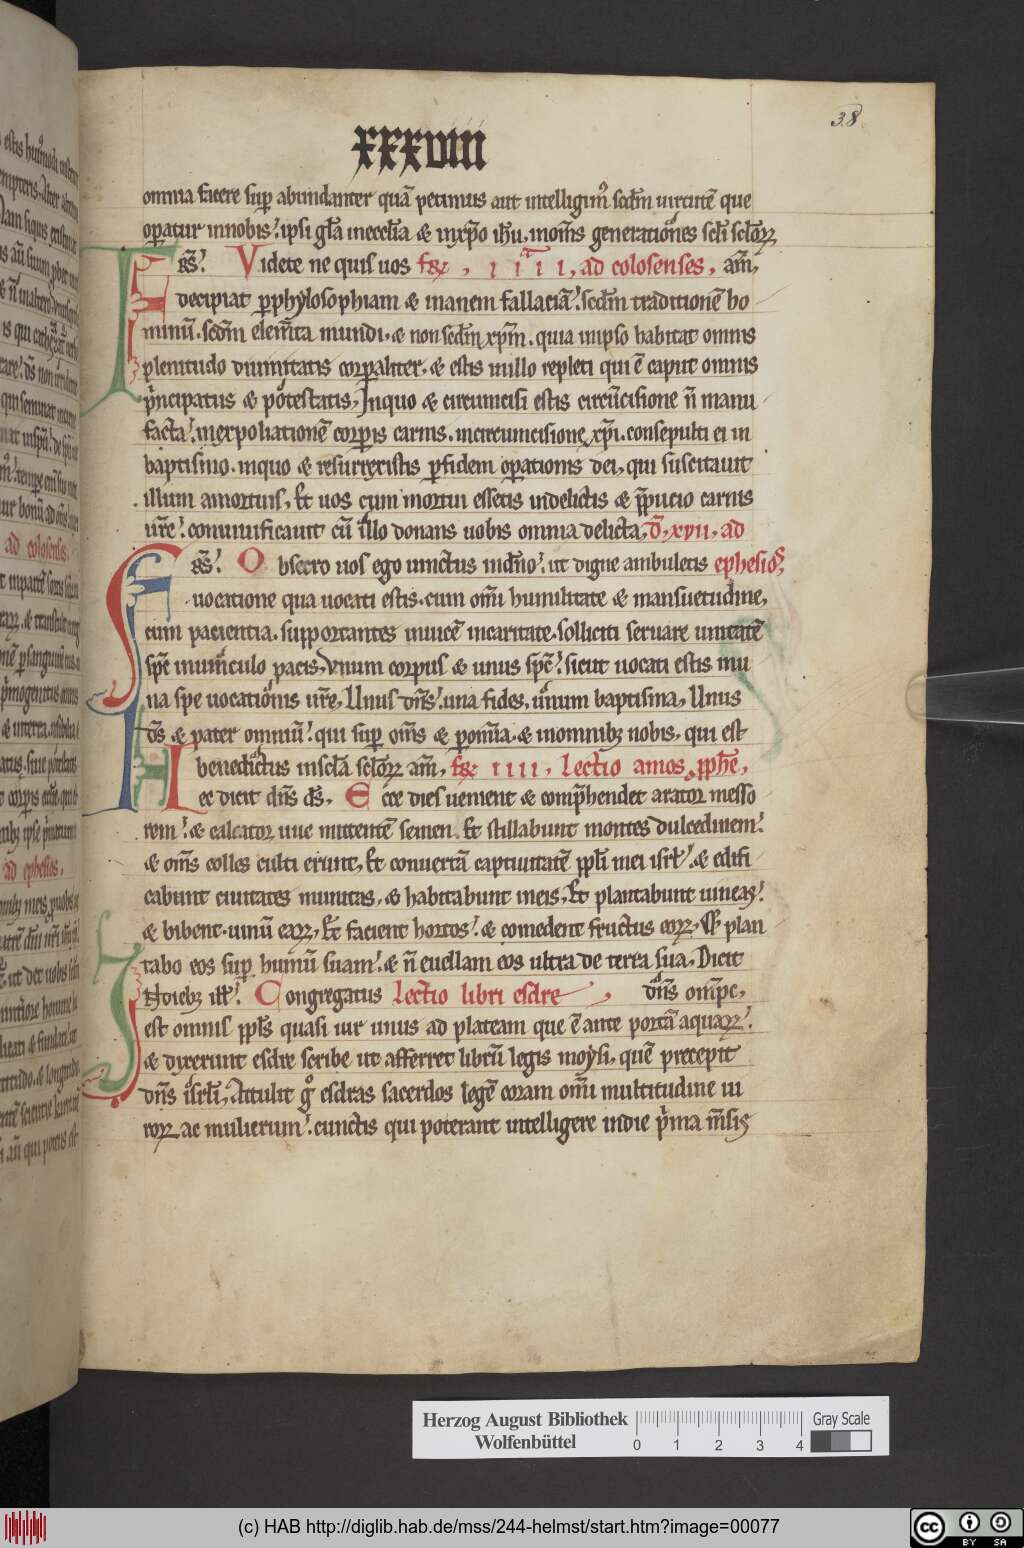 38
xxxviii
omnia facere sup abundanter quā petimus aut intelligim᷒ scdm uirtutē que
opatur innobis. ipsi gl̄a inecclīa & inxp̄o ih̄u, inom̄s generatiōnes scl̄i scl̄oꝝ
Frs̄. Videte ne quis uos fr̄ iiii, ad colosenses, am̄,
decipiat p phylosophiam & inanem fallaciā. scdm traditionē ho
minū. scdm elem̄ta mundi, & non scdm xp̄m. quia inipso habitat omnis
plenitudo diuinitatis corpaliter, & estis inillo repleti qui ē caput omnis
p̄ncipatus & potestatis, Inquo & circumcisi estis circūcisione n̄ manu
facta. inexpoliationē corpis carnis. incircumcisione xp̄i. consepulti ei in
baptismo. inquo & resurrexistis p fidem opationis dei, qui suscitauit
illum amortuis, Et uos cum mortui essetis indelictis & p̄pucio carnis
ur̄e. conuiuificauit cū illo donans uobis omnia delicta, d̄, xvii, ad
Frs̄. Obsecro uos ego uinctus indn̄o. ut digne ambuletis ephesios,
uocatione qua uocati estis. cum omi humilitate & mansuetudine,
cum pacientia. supportantes inuicē incaritate. solliciti seruare unitatē
sp̄c inuinculo pacis, Vnum corpus & unus sp̄c. sicut uocati estis inu
na spe uocationis ur̄e, Unus dn̄s. una fides, unum baptisma, Unus
d̄s & pater omniū. qui sup om̄s & p om̄ia. & inomnibꝫ nobis, qui est
benedictus inscl̄a scl̄oꝝ am̄, fr̄ iiii, Lectio amos pphē,
Hec dicit dn̄s ds̄, Ecce dies uenient & comphendet arator messo
rem. & calcator uue mittentē semen. Et stillabunt montes dulcedinem.
& om̄s colles culti erunt, Et conuertā captiuitatē ppl̄i mei isrl̄. & edifi
cabunt ciuitates munitas, & habitabunt ineis, Et plantabunt uineas.
& bibent. uinū eaꝝ, Et facient hortos. & comedent fructus eoꝝ, Et plan
tabo eos sup humū suam. & n̄ euellam eos ultra de terra sua, Dicit
Indiebꝫ ill̄. Congregatus Lectio libri esdre, dn̄s omp̄c,
est omnis ppl̄s quasi uir unus ad plateam que ē ante portā aquaꝝ.
& dixerunt esdre scribe ut afferret librū legis moysi, quē precepit
dn̄s isrl̄i, Attulit g̊ esdras sacerdos legē coram omi multitudine ui
roꝝ ac mulierum. cunctis qui poterant intelligere indie p̄ma m̄sis
ad colosenses
ad ephesios,
Herzog August Bibliothek
Wolfenbüttel
0 1 2 3 4
Gray Scale
(c) HAB http://diglib.hab.de/mss/244-helmst/start.htm?image=00077
cc BY SA